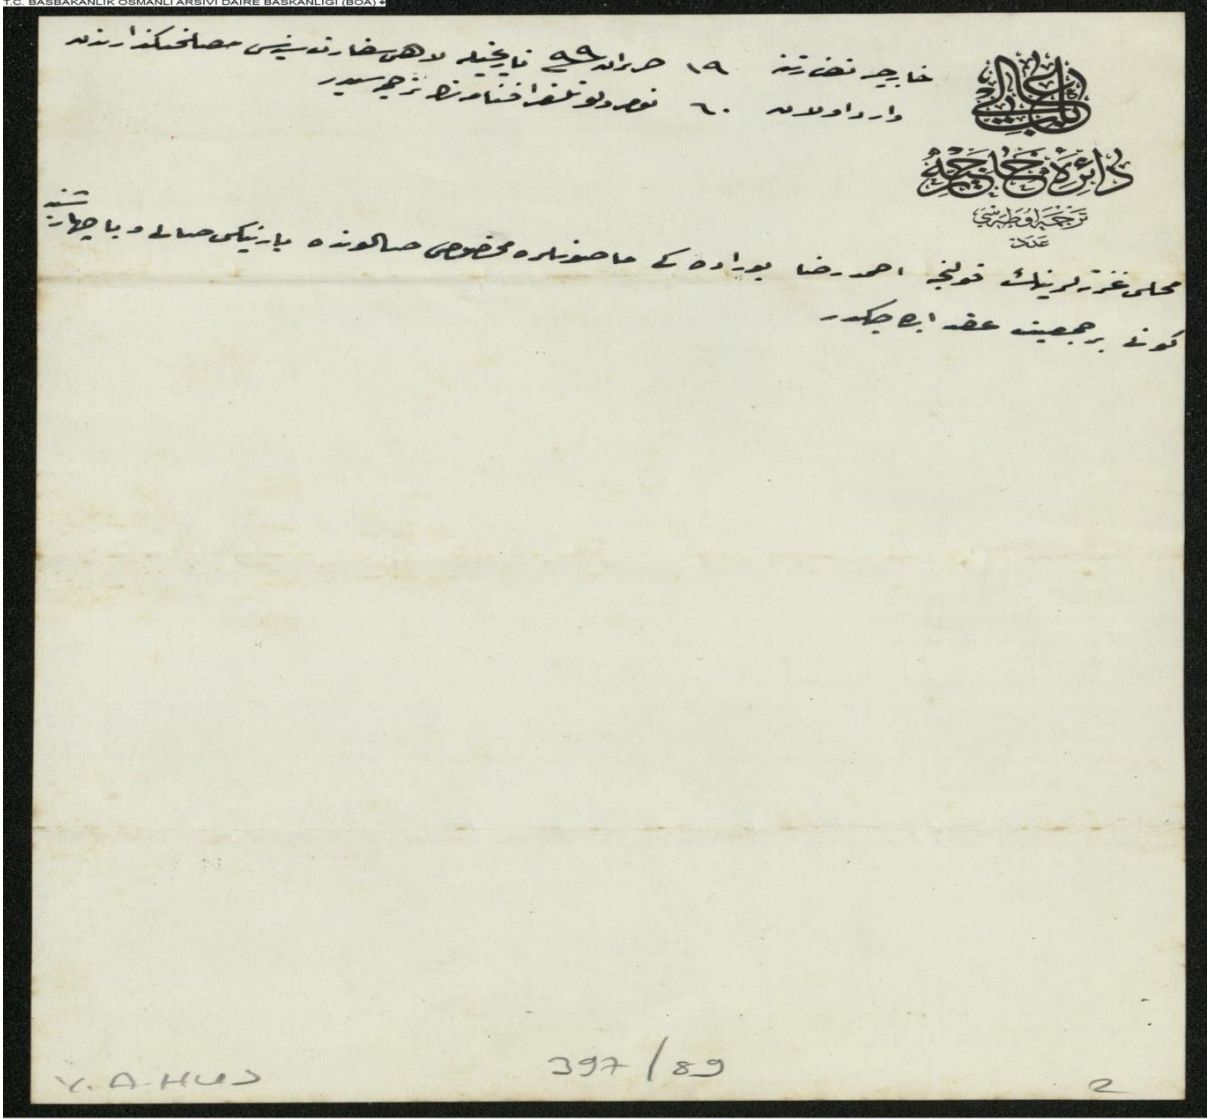 T.C. BASBAKANLIK OSMANLI ARSIVI DAIRE BASKANLIGI (BOA)
باب عالی
دائرهٔ خارجیه
ترجمه اوطه‌سی
عدد
خارجیه نظارتنه ١٩ حزیران ٩٩ تاریخیله لاهی سفارت سنیه‌سی مصلحتگذارندن
وارد اولان ٦٠ نومرولو تلغرافنامه‌نك ترجمه‌سیدر
محلی غزته‌لرینك قولنجه احمد رضا بوراده کی ماصونلره مخصوص صالونده یارینکی صالی ویا چهارشنبه
کونی بر جمعیت عقد ایده‌جكدر
Y. A. HUS
397/89
2